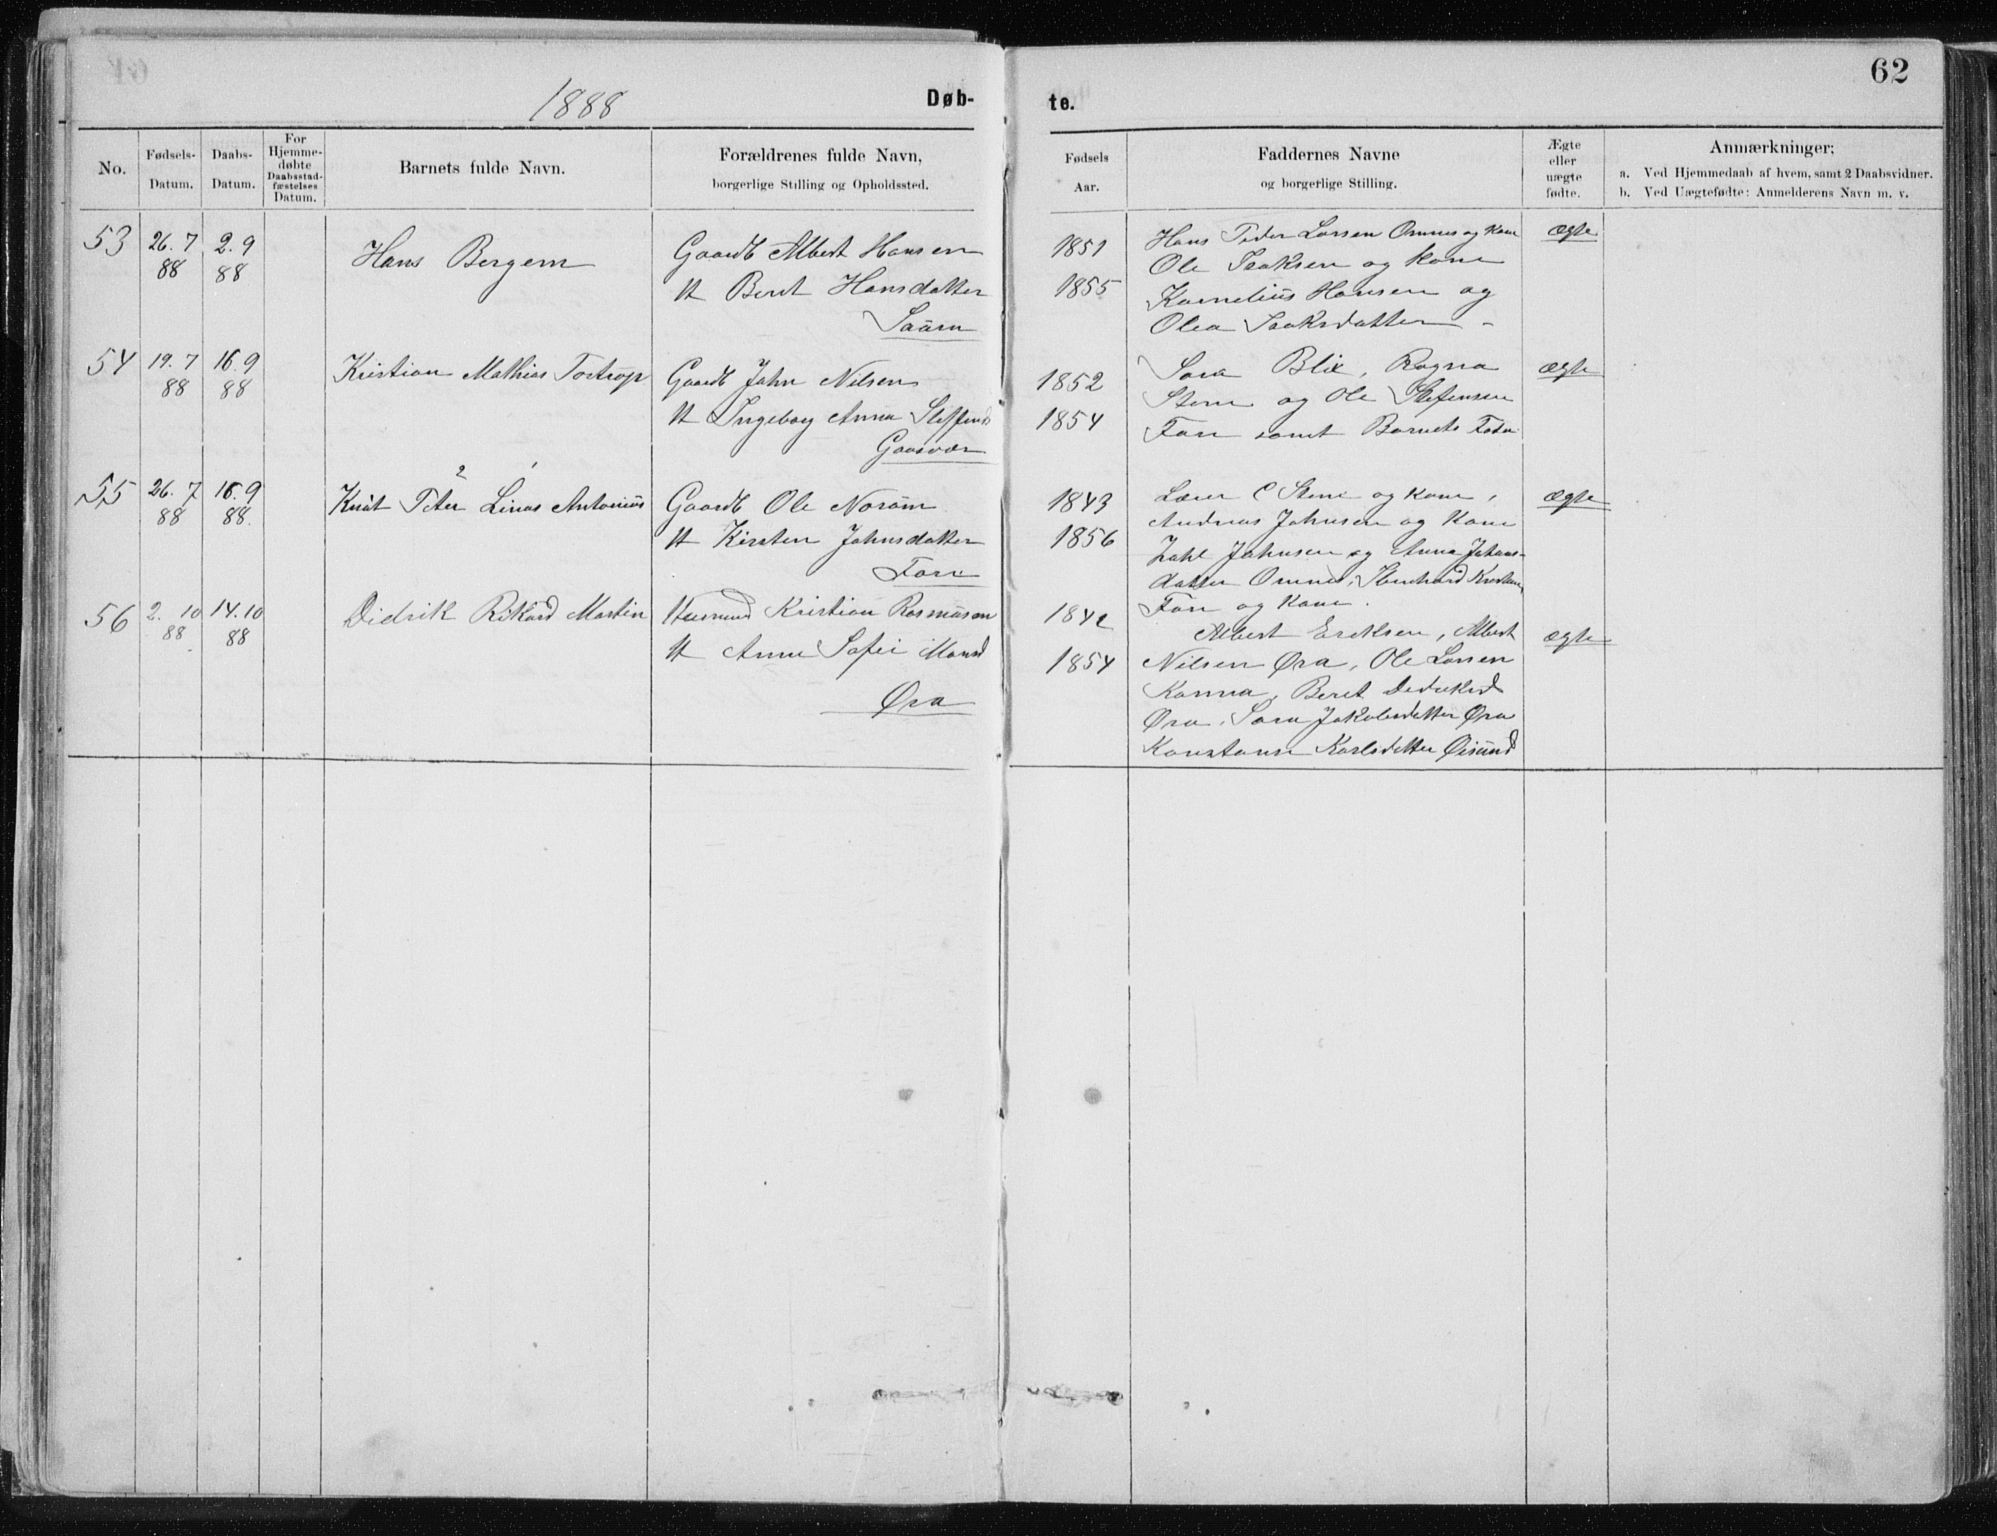 62
1888
Døb-
te.
No.
Fødsels-
Datum.
Daabs-
Datum.
For
Hjemme-
døbte
Daabsstad-
fæstelses
Datum.
Barnets fulde Navn.
Forældrenes fulde Navn,
borgerlige Stilling og Opholdssted.
Fødsels
Aar.
Faddernes Navne
og borgerlige Stilling.
Ægte
eller
uægte
fødte.
Anmærkninger:
a. Ved Hjemmedaab af hvem, samt 2 Daabsvidner.
b. Ved Uægtefødte: Anmelderens Navn m. v.
53
26. 7
88
2. 9
88
Hans Bergem
Gaardb Albert Hansen
H Beret Hansdatter
1851
1855
Hans Peder Larsen og Kone
Ole Isaksen og Kone
Kornelius Hansen og
Olea Isaksdatter -
ægte
54
19. 7
88
16. 9
88
Kristian Mathias Tostrup
Gaardb John Nilsen
H Ingeborg Anna Steffensd
Gaasvær
1852
1854
Sara Blix, Ragna
Stene og Ole Stefensen
Fore samt Barnets Fader
ægte
55
26. 7
88
16. 9
88.
2
Knut Peter Linas Antonius
Gaardb Ole
H Kirsten Johnsdatter
Fore
1843
1856
Lærer C Stene og Kone,
Andreas Johnsen og Kone
Zahl Johnsen og Anna Johans-
datter
Fore og Kone.
ægte
56
2. 10
88
14. 10
88
Didrik Rikard Martin
Husmand Kristian Rasmusen
H Anne Sofie Monsd
Øra
1842
1854
Albert Eriksen, Albert
Nilsen Øra, Ole Larsen
Beret Didriksd
Øra, Sara Jakobsdatter Øra
Konstanse Karlsdatter Øisund
ægte